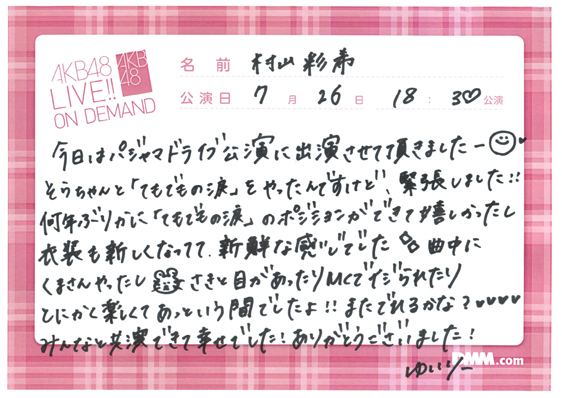 AKB48
LIVE!!
ON DEMAND
AKB
48
名前 村山彩希
公演日 7月26日 18:30公演
今日はパジャマドライブ公演に出演させて頂きましたー
そうちゃんと「てもでもの涙」をやったんですけど、緊張しました!!
何年ぶりかに「てもでもの涙」のポジションができて嬉しかったし
衣装も新しくなってて、新鮮な感じでした 曲中に
くまさんやったし さきと目があったりMCでイジられたり
とにかく楽しくてあっという間でしたよ!! またでれるかな?♥♥♥♥
みんなと共演できて幸せでした!ありがとうございました!
ゆいりー
DMM.com